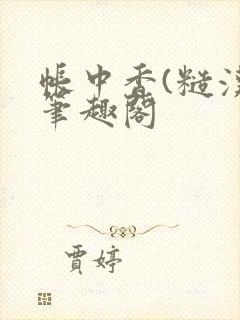 帳中香(糙
筆趣閣
賈婷